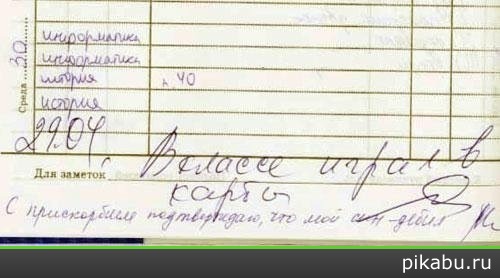 Среда 30
информатика
информатика
история п. 40
история
29.04.
Для заметок В классе играл в
карты
С прискорбием подтверждаю, что мой сын - дебил
pikabu.ru